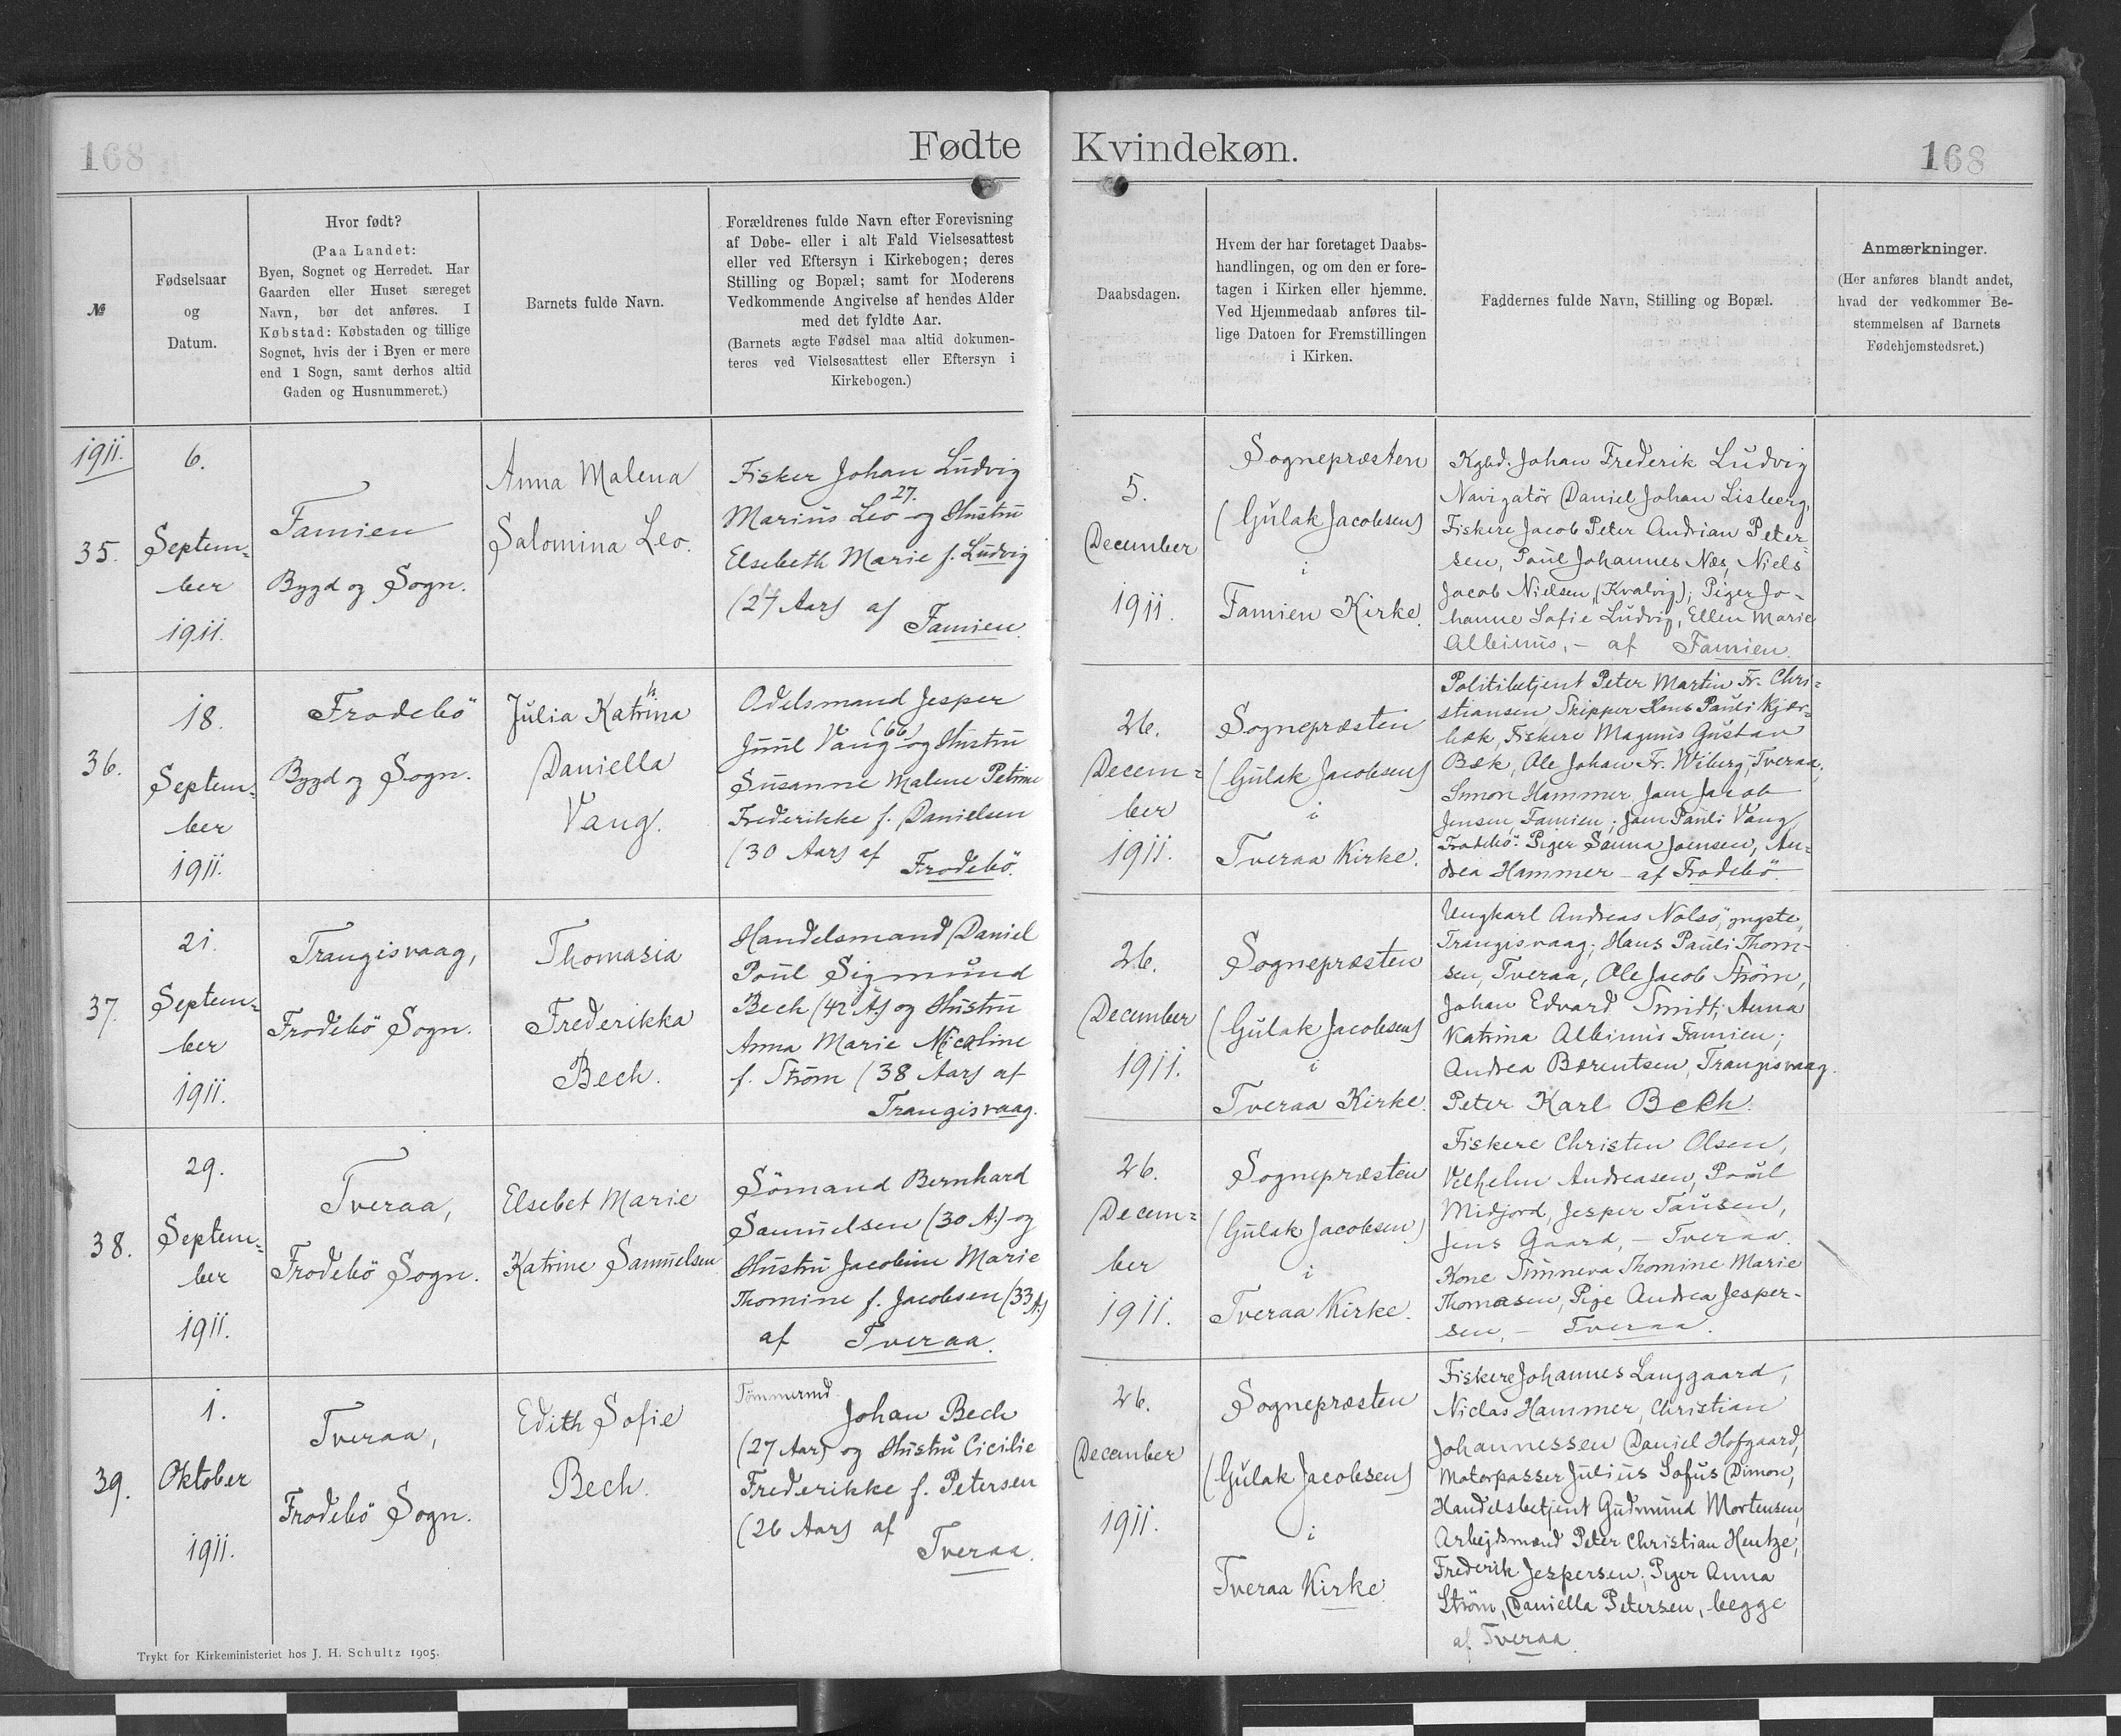 168
Fødte
Kvindekøn.
168
№
Fødselsaar
og
Datum.
Hvor født?
(Paa Landet:
Byen, Sognet og Herredet. Har
Gaarden eller Huset særeget
Navn, bør det anføres. I
Købstad: Købstaden og tillige
Sognet, hvis der i Byen er mere
end 1 Sogn, samt derhos altid
Gaden og Husnummeret.)
Barnets fulde Navn.
Forældrenes fulde Navn efter Forevisning
af Døbe- eller i alt Fald Vielsesattest
eller ved Eftersyn i Kirkebogen; deres
Stilling og Bopæl; samt for Moderens
Vedkommende Angivelse af hendes Alder
med det fyldte Aar.
(Barnets ægte Fødsel maa altid dokumen-
teres ved Vielsesattest eller Eftersyn i
Kirkebogen.)
Daabsdagen.
Hvem der har foretaget Daabs-
handlingen, og om den er fore-
tagen i Kirken eller hjemme.
Ved Hjemmedaab anføres til-
lige Datoen for Fremstillingen
i Kirken.
Faddernes fulde Navn, Stilling og Bopæl.
Anmærkninger.
(Her anføres blandt andet,
hvad der vedkommer Be-
stemmelsen af Barnets
Fødehjemstedsret.)
1911.
35.
6.
Septem-
ber
1911.
Famien
Bygd og Sogn.
Anna Malena
Salomina Leo.
Fisker Johan Ludvig
27.
Marius Leo og Hustru
Elsebeth Marie f. Ludvig
(24 Aar) af
Famien.
5.
December
1911.
Sognepræsten
(Gulak Jacobsen)
i
Famien Kirke.
Kgbd. Johan Frederik Ludvig
Navigatör Daniel Johan Lisberg,
Fiskere Jacob Peter Andrian Peter-
sen, Poul Johannes Næs, Niels
Jacob Nielsen, (Kvalvig); Piger Jo-
hanne Sofie Ludvig, Ellen Marie
Albinus, - af Famien.
36.
18.
Septem-
ber
1911.
Frodebö
Bygd og Sogn.
h
Julia Katrina
Daniella
Vang.
Odelsmand Jesper
(66)
Juul Vang og Hustru
Susanne Malene Petrine
Frederikke f. Danielsen
(30 Aar) af
Frodebö.
26.
Decem-
ber
1911.
Sognepræsten
(Gulak Jacobsen)
i
Tveraa Kirke.
Politibetjent Peter Martin Fr. Chri-
stiansen, Skipper Hans Pauli Kjær-
bæk, Fiskere Magnus Gustav
Bæk, Ole Johan Fr. Wiberg, Tveraa;
Simon Hammer, Joen Jacob
Jensen, Famien; Joen Pauli Vang
Frodebö. Piger Sanna Joensen, An-
drea Hammer - af Frodebö.
37.
21.
Septem-
ber
1911.
Trangisvaag,
Frodebö Sogn.
Thomasia
Frederikka
Bech.
Handelsmand Daniel
Poul Sigmund
Bech (42 A.) og Hustru
Anna Marie Nicoline
f. Ström (38 Aar) af
Trangisvaag.
26.
December
1911.
Sognepræsten
(Gulak Jacobsen)
i
Tveraa Kirke.
Ungkarl Andreas Nolsö, yngste,
Trangisvaag; Hans Pauli Thom-
sen, Tveraa, Ole Jacob Ström,
Johan Edvard Smidt; Anna
Katrina Albinus Famien;
Andrea Bærentsen, Trangisvaag.
Peter Karl Bech.
38.
29.
Septem-
ber
1911.
Tveraa,
Frodebö Sogn.
Elsebet Marie
Katrine Samuelsen
Sömand Bernhard
Samuelsen (30 A.) og
Hustru Jacobine Marie
Thomine f. Jacobsen (33 A.)
af Tveraa.
26.
Decem-
ber
1911.
Sognepræsten
(Gulak Jacobsen)
i
Tveraa Kirke.
Fiskere Christen Olsen,
Vilhelm Andreasen, Poul
Midjord, Jesper Tausen,
Jens Gaard, - Tveraa.
Kone Sunneva Thomine Marie
Thomasen, Pige Andrea Jesper-
sen, - Tveraa.
39.
1.
Oktober
1911.
Tveraa,
Frodebö Sogn.
Edith Sofie
Bech.
Tömmermd.
Johan Bech
(27 Aar) og Hustru Cicilie
Frederikke f. Petersen
(26 Aar) af
Tveraa.
26.
December
1911.
Sognepræsten
(Gulak Jacobsen)
i
Tveraa Kirke.
Fiskere Johannes Langgaard,
Niclas Hammer, Christian
Johannessen, Daniel Hofgaard,
Motorpasser Julius Sofus Dimon,
Handelsbetjent Gudmund Mortensen,
Arbejdsmænd Peter Christian Hentze,
Frederik Jespersen; Piger Anna
Ström, Daniella Petersen, begge
af Tveraa.
Trykt for Kirkeministeriet hos J. H. Schultz 1905.